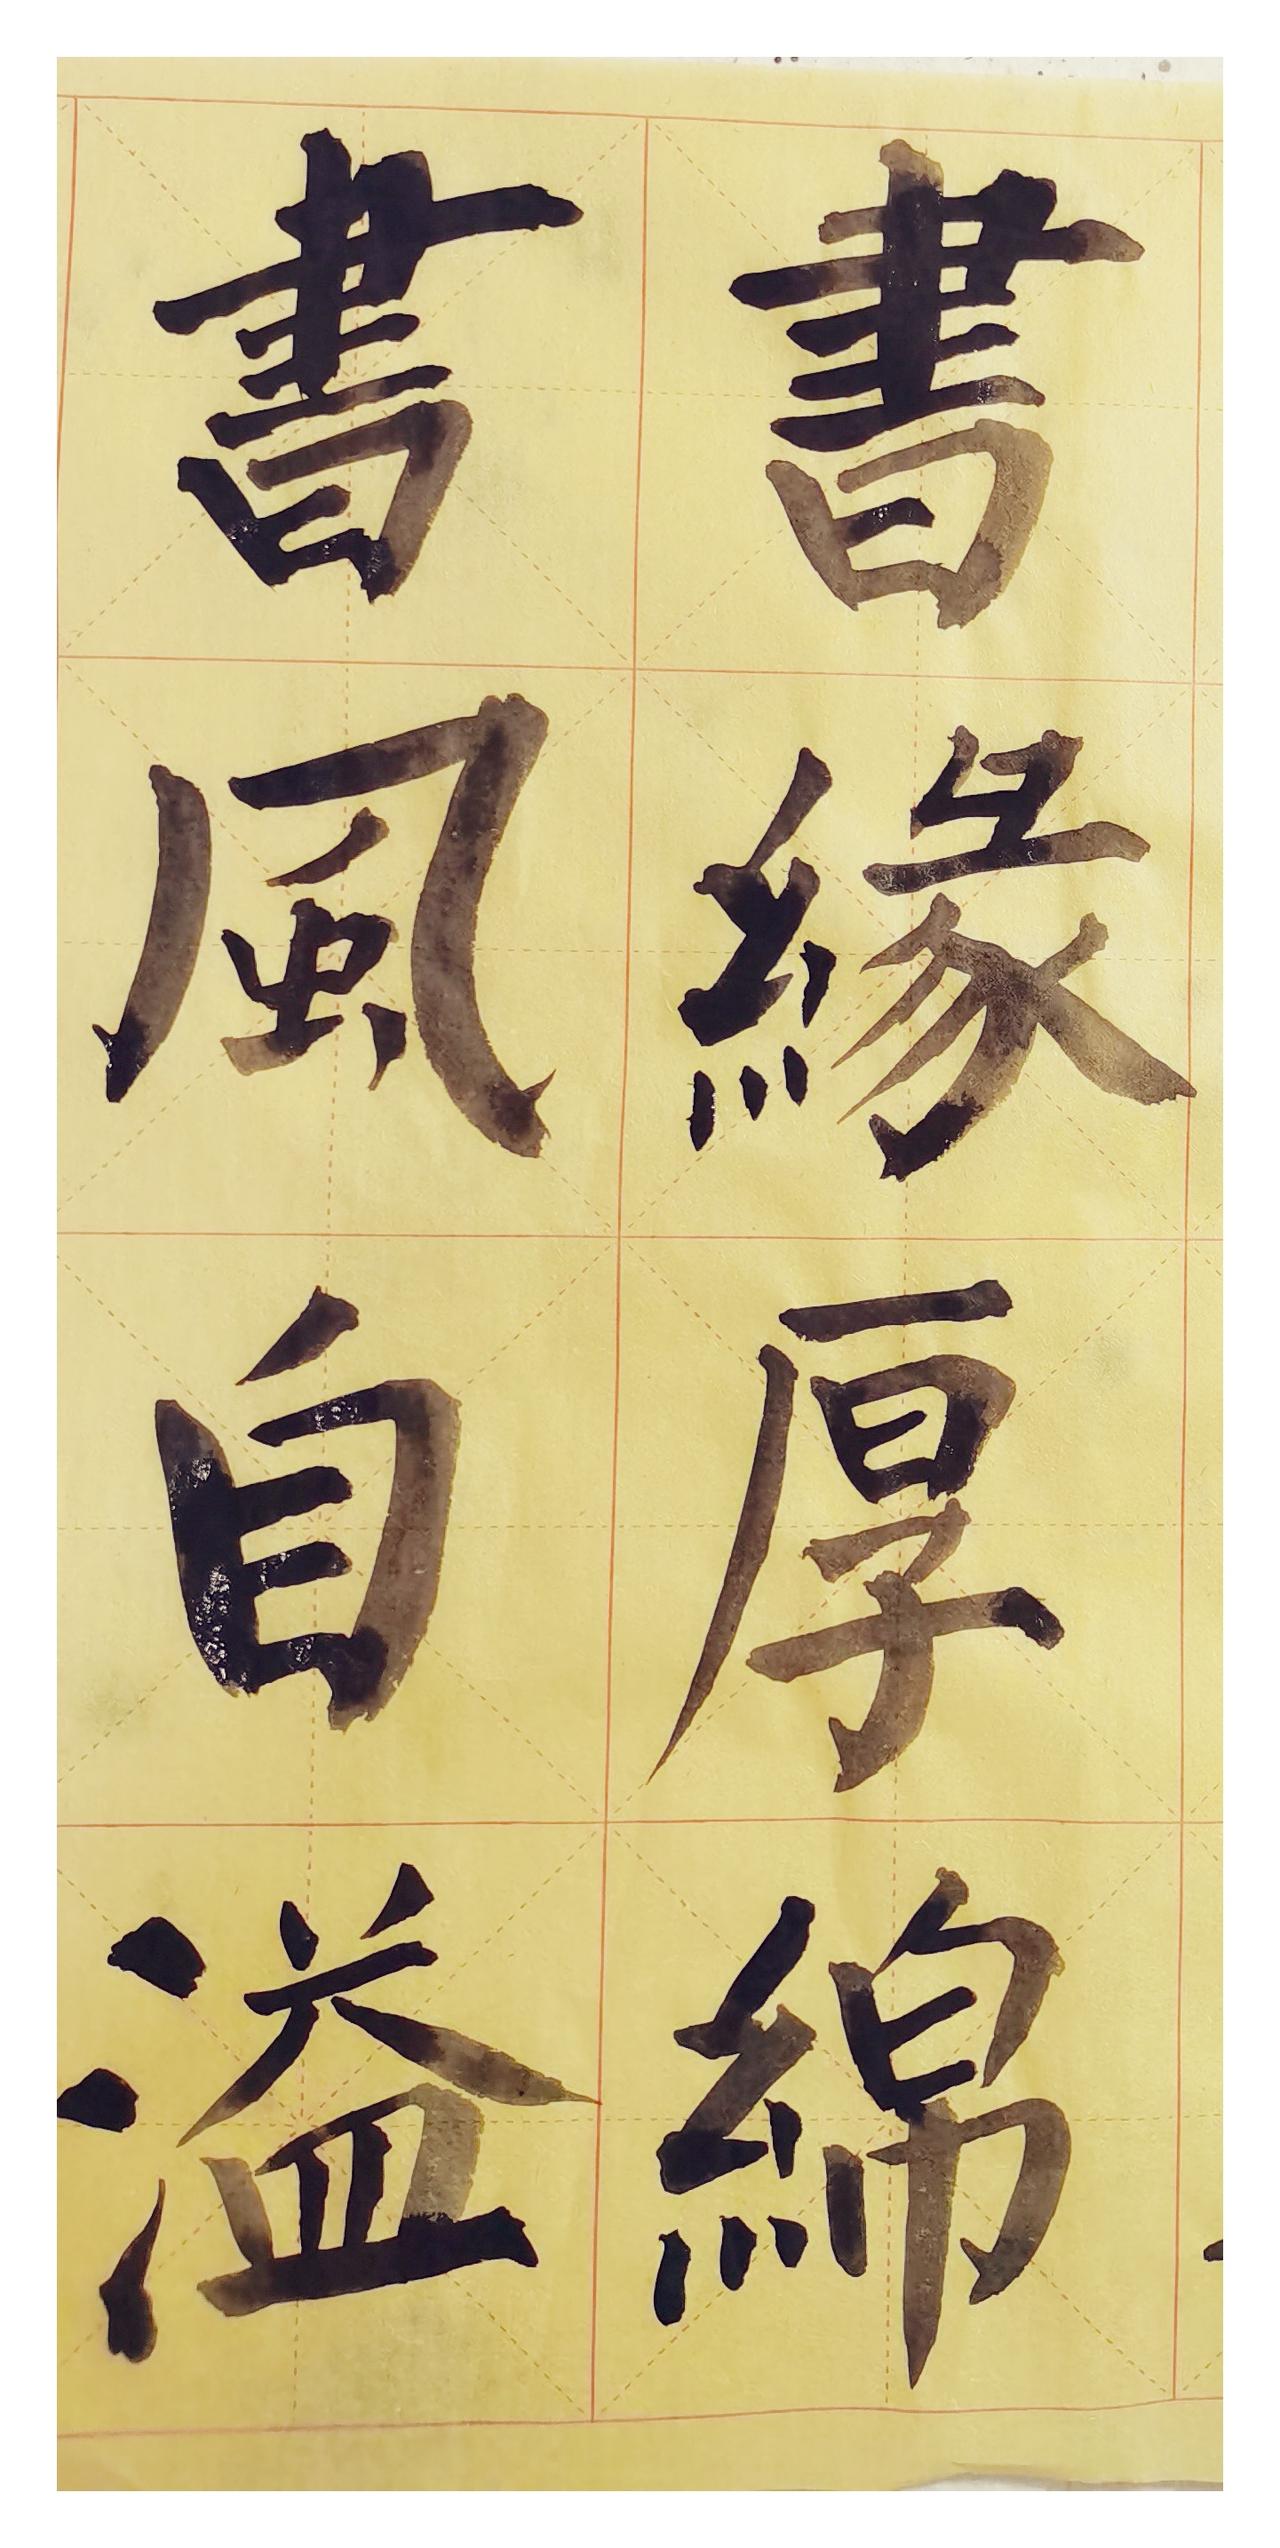 書緣厚綿
書風自溢